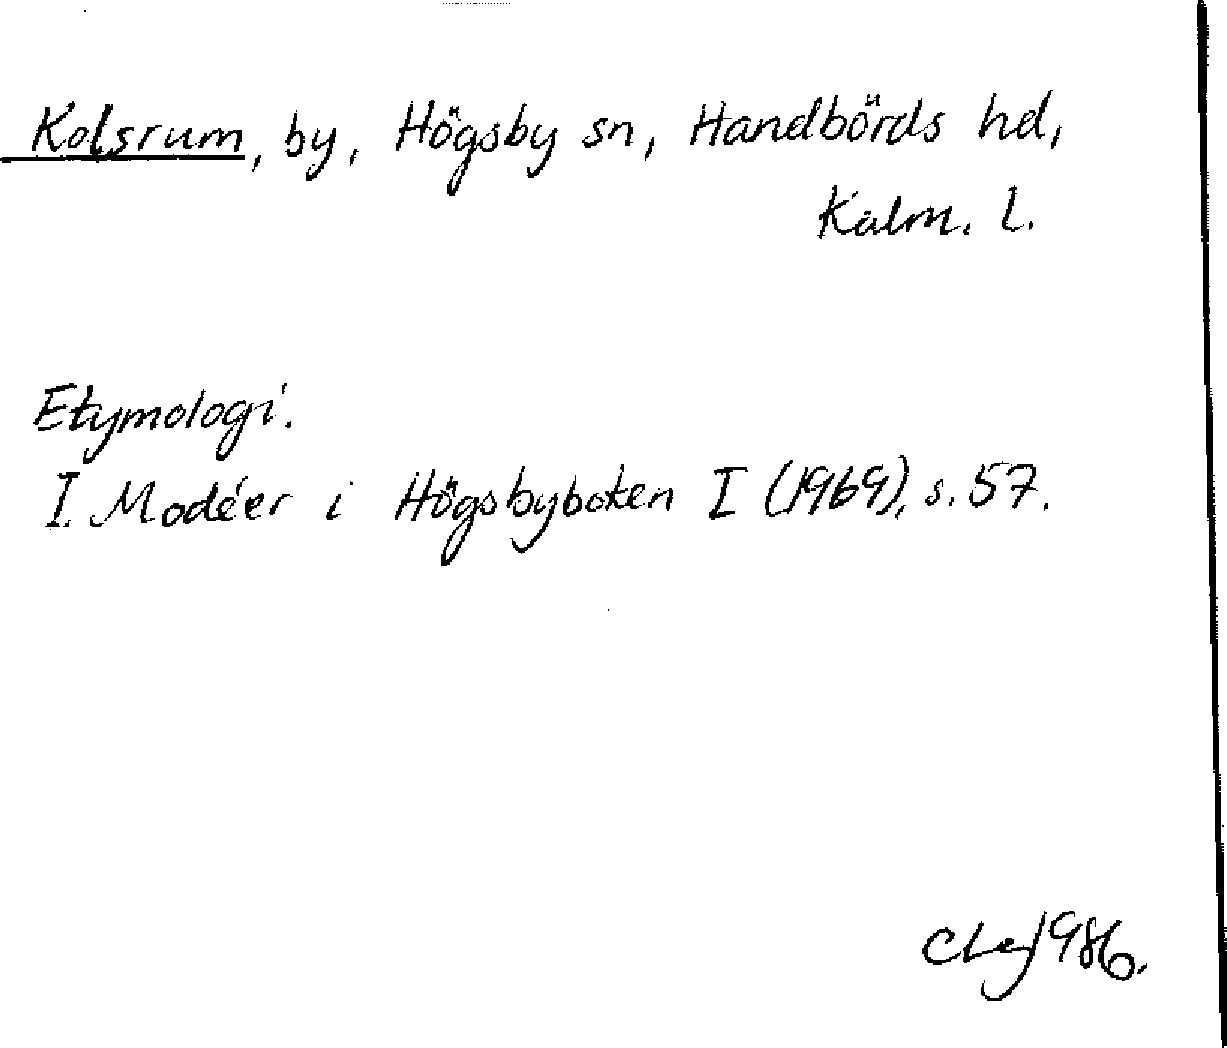 Kolsrum, by, Högsby sn, Handbörds hd,
Kalm. l.
Etymologi.
I. Modéer i Högsbyboken I (1969), s. 57.
1986.